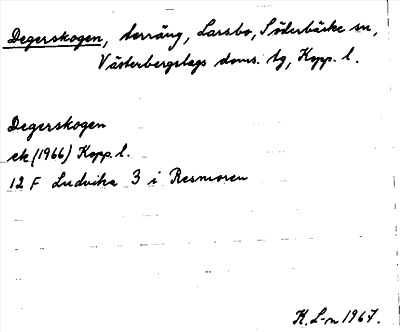 Degerskogen, terräng, Larsbo, Söderbärke sn,
Västerbergslags doms. tg, Kopp. l.
Degerskogen
ek (1966) Kopp. l.
12 F Ludvika 3 i Resmoren
K. L-n 1967.